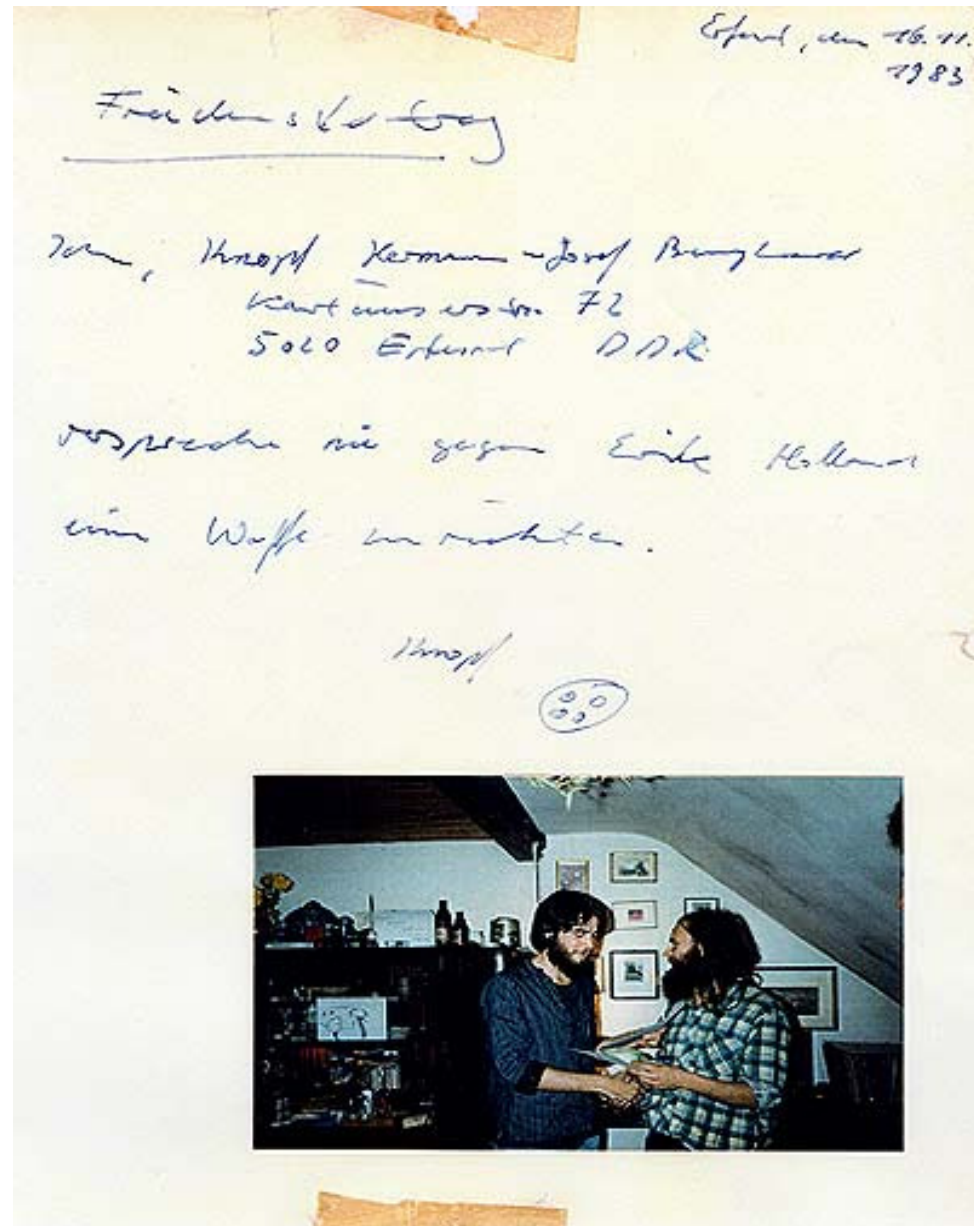 Erfurt, den 16.11.
1983
Friedensvertrag
Ich, Knopf Hermann-Josef
72
5020 Erfurt DDR
verspreche nie gegen Holland
eine Waffe zu richten.
Knopf